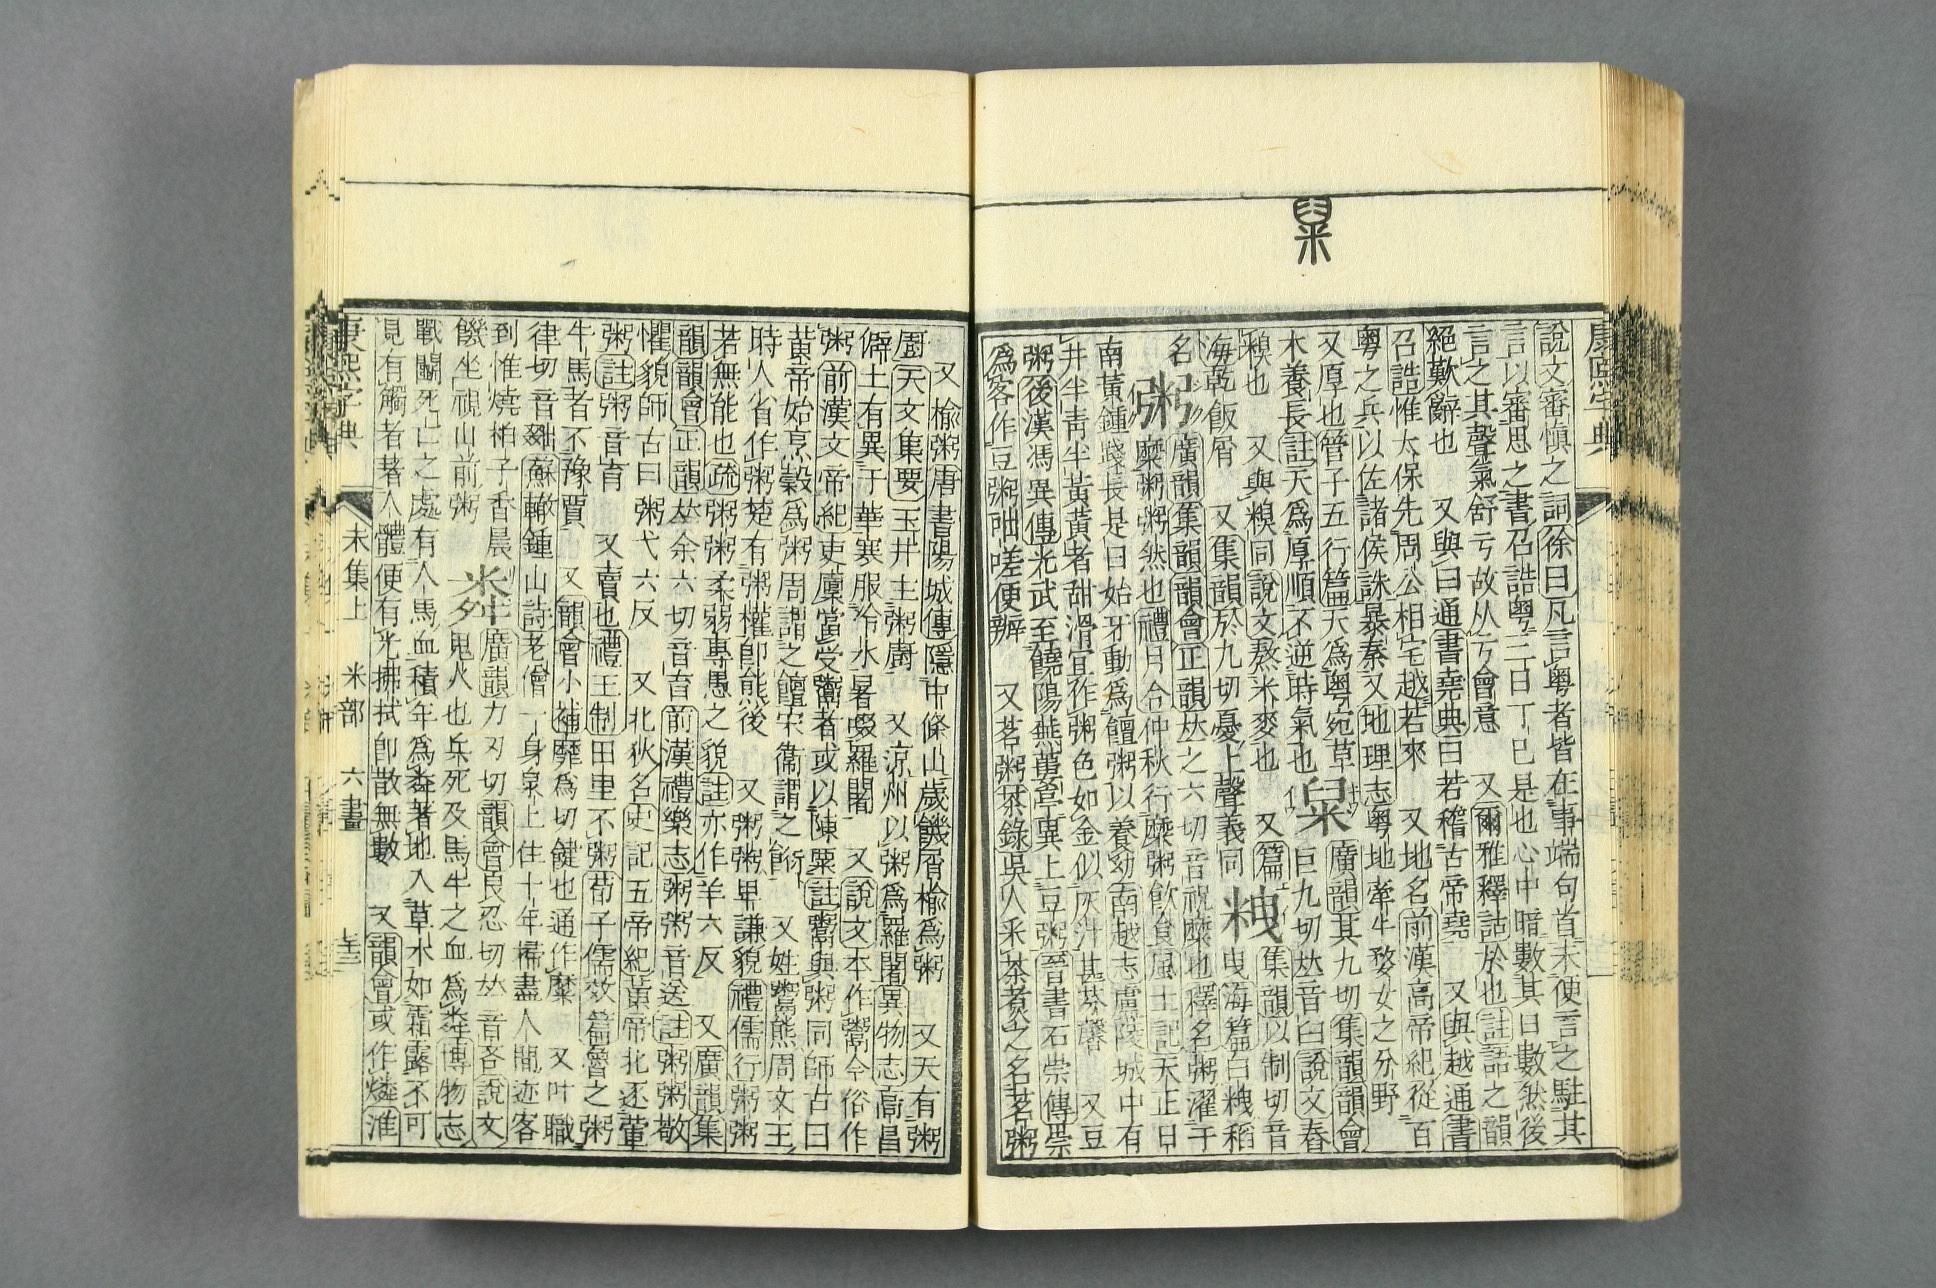 康熙字典
説文審慎之詞徐曰凡言粵者皆在事端句首未便言之駐其
言以審思之書召誥粵三日丁巳是也心中暗數其日數然後
言之其聲氣舒亏故从亏會意　又爾雅釋詁於也註語之韻
絕歎辭也　又與曰通書堯典曰若稽古帝堯　又與越通書
召誥惟太保先周公相宅越若來　又地名前漢高帝紀從百
粵之兵以佐諸侯誅暴秦又地理志粵地牽牛婺女之分野
又厚也管子五行篇天爲粵宛草
木養長註天爲厚順不逆時氣也
臼米
廣韻其九切集韻韻會
巨九切𠀤音臼說文舂
糗也　又與糗同說文熬米麥也　又篇
海乾飯屑　又集韻於九切憂上聲義同
粬
集韻以制切音
曳海篇白粬稻
名
粥
廣韻集韻韻會正韻𠀤之六切音祝糜也釋名粥濯于
糜粥粥然也禮月令仲秋行糜粥飲食風土記天正日
南黃鍾踐長是日始牙動爲饘粥以養幼南越志盧陵城中有
井半靑半黃黃者甜滑宜作粥色如金似灰汁甚芬馨　又豆
粥後漢馮異傳光武至饒陽蕪蔞亭異上豆粥晉書石崇傳崇
爲客作豆粥咄嗟便辦　又茗粥茶錄吳人采茶煮之名茗粥
又榆粥唐書陽城傳隱中條山歲饑屑榆爲粥　又天有粥
廚天文集要玉井主粥廚　又涼州以粥爲羅闍異物志高昌
僻土有異于華寒服冷水暑啜羅闍　又說文本作鬻今俗作
粥前漢文帝紀吏廩當受鬻者或以陳粟註鬻與粥同師古曰
黃帝始烹穀爲粥周謂之饘宋衞謂之𩛿　又姓鬻熊周文王
時人省作粥楚有粥權卽熊後　又粥粥卑謙貌禮儒行粥粥
若無能也疏粥粥柔弱專愚之貌註亦作羊六反　又廣韻集
韻韻會正韻𠀤余六切音育前漢禮樂志粥粥音送註粥粥敬
懼貌師古曰粥弋六反　又北狄名史記五帝紀黃帝北逐葷
粥註粥音育　又賣也禮王制田里不粥荀子儒效篇魯之粥
牛馬者不豫賈　又韻會小補靡爲切鍵也通作糜　又叶職
律切音䵵蘇轍鍾山詩老僧一身泉上住十年掃盡人閒迹客
到惟燒柏子香晨
饑坐視山前粥
粦
廣韻力刃切韻會良忍切𠀤音吝說文
鬼火也兵死及馬牛之血爲粦博物志
戰鬭死亡之處有人馬血積年爲粦著地入草木如霜露不可
見有觸者著人體便有光拂拭卽散無數　又韻會或作燐淮
康熙字典
未集上　米部　六畫